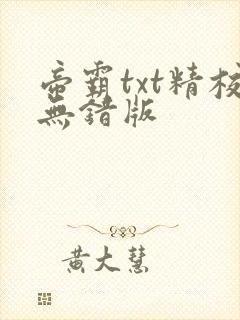 帝霸txt精校
無錯版
黃大慧